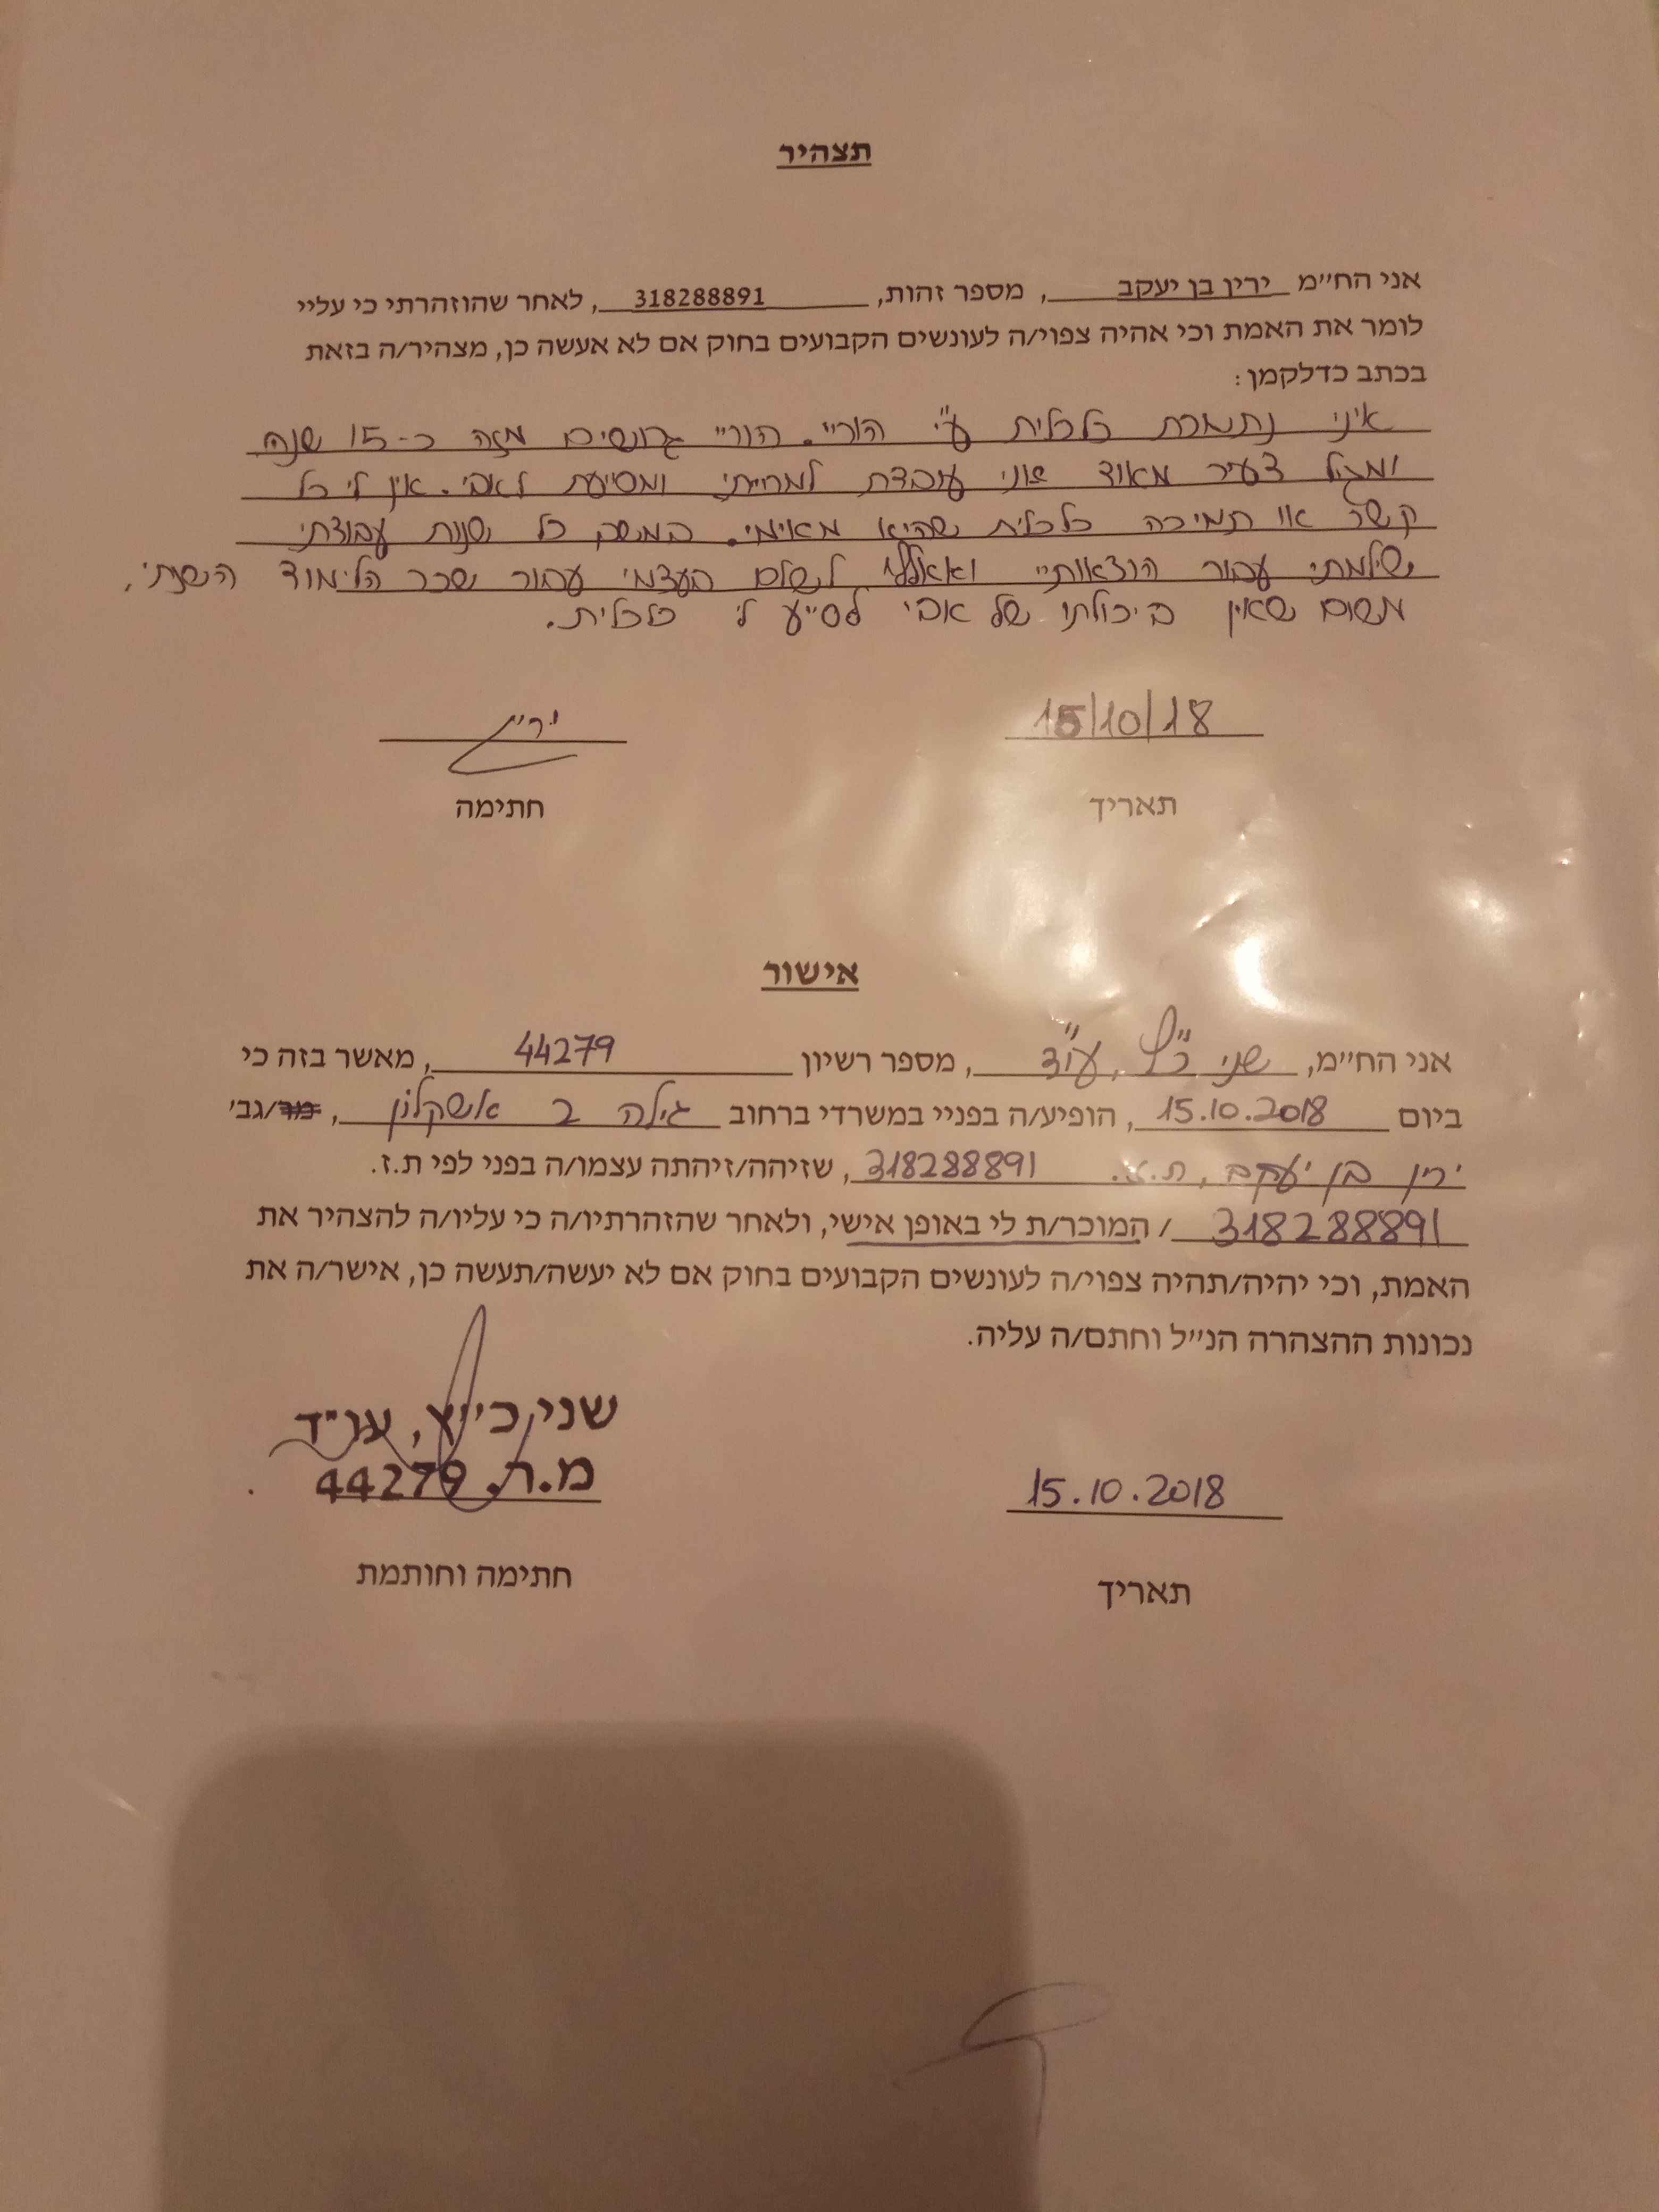 תצהיר
אני הח"מ ירין בן יעקב, מספר זהות, 318288891, לאחר שהוזהרתי כי עליי
לומר את האמת וכי אהיה צפוי/ה לעונשים הקבועים בחוק אם לא אעשה כן, מצהיר/ה בזאת
בכתב כדלקמן:
איני נתמכת כלכלית ע"י הוריי. הוריי גרושים מזה כ-15 שנה
ומגיל צעיר מאוד אני עובדת למחייתי ומסייעת לאבי. אין לי כל
קשר או תמיכה כלכלית שהיא מאימי. במשך כל שנות עבודתי
שילמתי עבור הוצאותיי לשלם בעצמי עבור שכר הלימוד השנתי,
משום שאין ביכולתו של אבי לסייע לי כלכלית.
15/10/18 ירין
תאריך חתימה
אישור
אני הח"מ, שני כ"ץ, עו"ד, מספר רשיון 44279, מאשר בזה כי
ביום 15.10.2018, הופיע/ה בפניי במשרדי ברחוב גילה 2 אשקלון, מר/גב'
ירין בן יעקב, ת.ז. 318288891, שזיהה/זיהתה עצמו/ה בפני לפי ת.ז.
318288891 / המוכר/ת לי באופן אישי, ולאחר שהזהרתיו/ה כי עליו/ה להצהיר את
האמת, וכי יהיה/תהיה צפוי/ה לעונשים הקבועים בחוק אם לא יעשה/תעשה כן, אישר/ה את
נכונות ההצהרה הנ"ל וחתם/ה עליה.
שני כ"ץ, עו"ד
15.10.2018 מ.ר. 44279
תאריך חתימה וחותמת